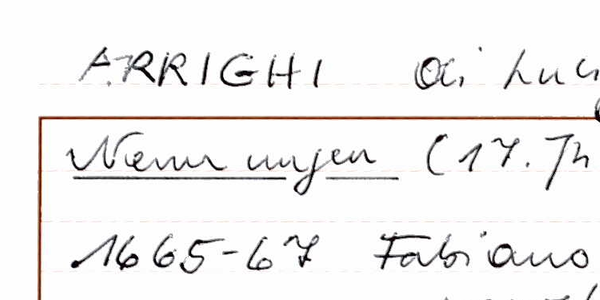 ARRIGHI di Luc
Nennungen (17. Jh
1665-67 Fabiano